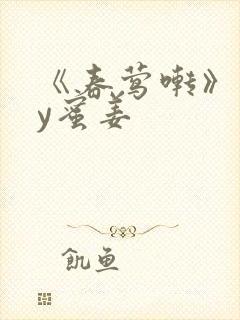 《春莺啭》
y蜜姜
飢鱼